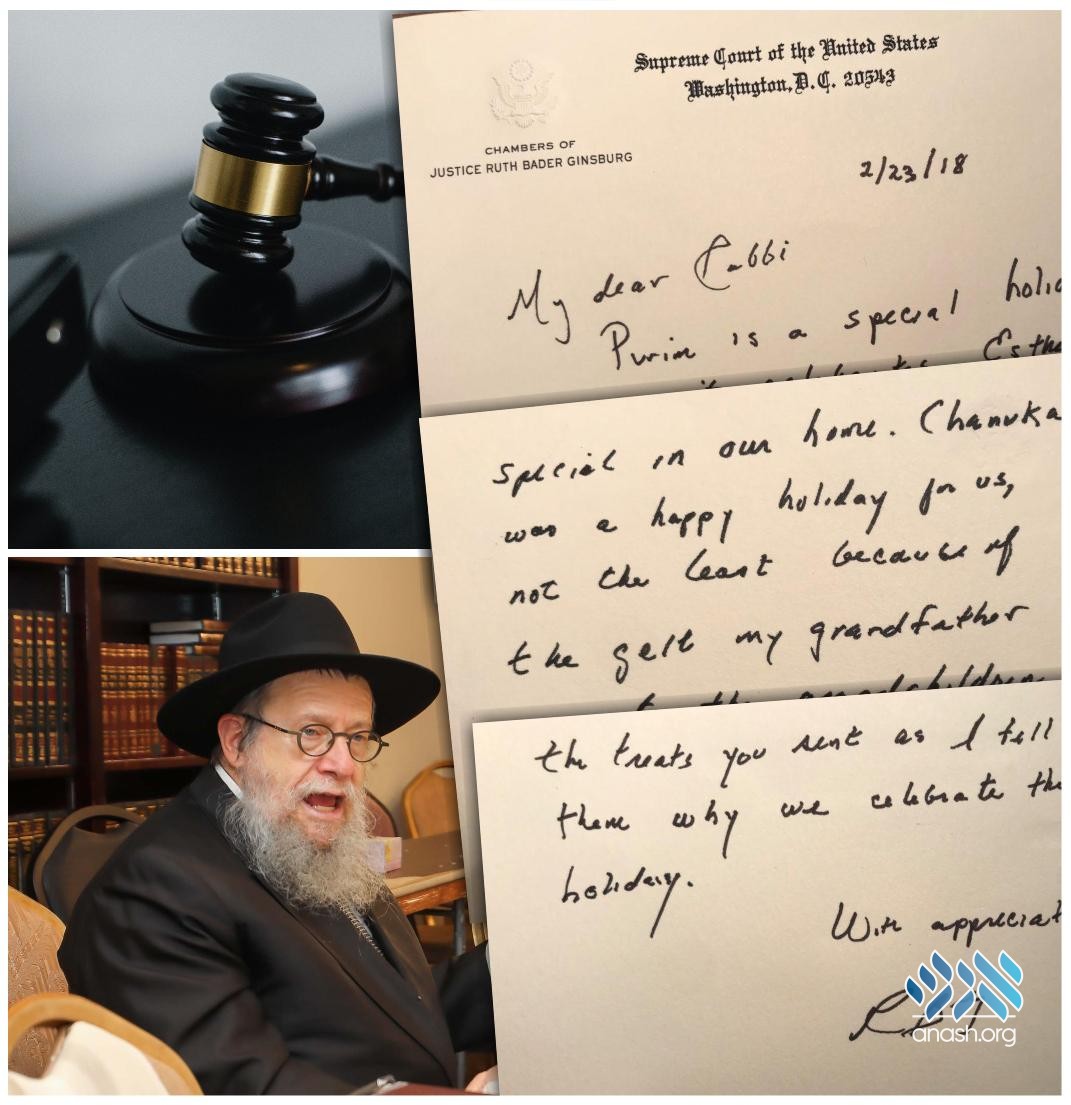 Supreme Court of the United States
Washington, D.C. 20543
CHAMBERS OF
JUSTICE RUTH BADER GINSBURG
2/23/18
My dear Rabbi
Purim is a special
special in our home. Chanuka
was a happy holiday for us,
not the least because of
the gelt my grandfather
grandchildren
the treats you sent as I tell
them why we celebrate the
holiday.
With
אנש
anash.org